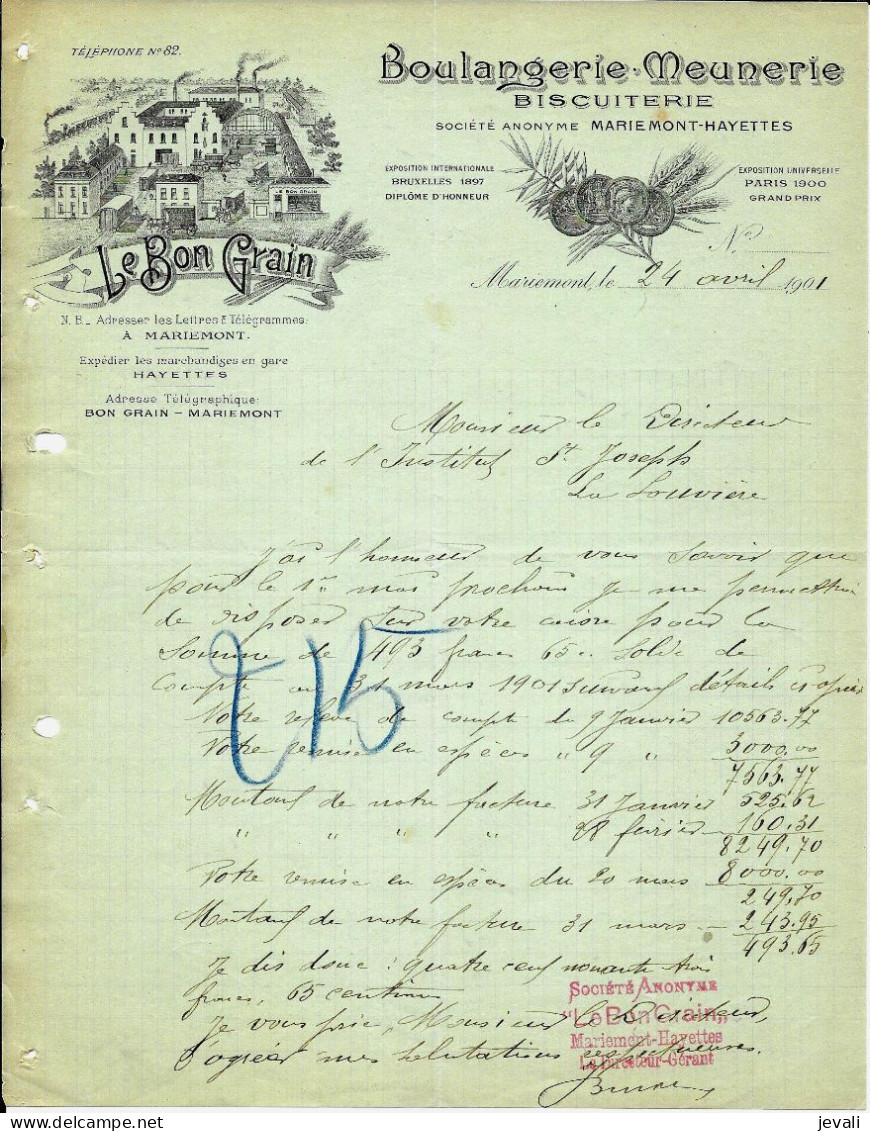 TÉLÉPHONE Nº 82.
Boulangerie-Meunerie
BISCUITERIE
SOCIÉTÉ ANONYME MARIEMONT-HAYETTES
EXPOSITION INTERNATIONALE
BRUXELLES 1897
DIPLÔME D'HONNEUR
EXPOSITION UNIVERSELLE
PARIS 1900
GRAND PRIX
LE BON GRAIN
Le Bon Grain
Nº
Mariemont, le 24 avril 1901
N.B._ Adresser les Lettres & Télégrammes:
À MARIEMONT.
Expédier les marchandises en gare
HAYETTES
Adresse Télégraphique:
BON GRAIN – MARIEMONT
Monsieur le Directeur
de l'Institut St Joseph
La Louvière
J'ai l'honneur de vous savoir que
pour le 1er mai prochain je me permettrai
de disposer sur votre caisse pour la
somme de 493 francs 65 c. solde de
compte au 31 mars 1901 suivant détails
215
Notre relevé de compte du 9 Janvier 10563.77
Votre remise en espèces " 9 " 3000.00
7563.77
Montant de notre facture 31 Janvier 525.62
" " " " 28 février 160.31
8249.70
Votre remise en espèces du 20 mars 8000.00
249,70
Montant de notre facture 31 mars – 243.95
493.65
Je dis donc : quatre cent nonante trois
francs, 65 centimes
Je vous prie, Monsieur le Directeur,
d'agréer mes salutations respectueuses.
SOCIÉTÉ ANONYME
"Le Bon Grain"
Mariemont-Hayettes
Le Directeur-Gérant
jevali